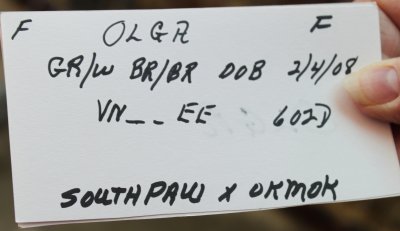 F OLGA F
GR/W BR/BR DOB 2/4/08
VN__EE 602D
SOUTHPAW X OKMOK